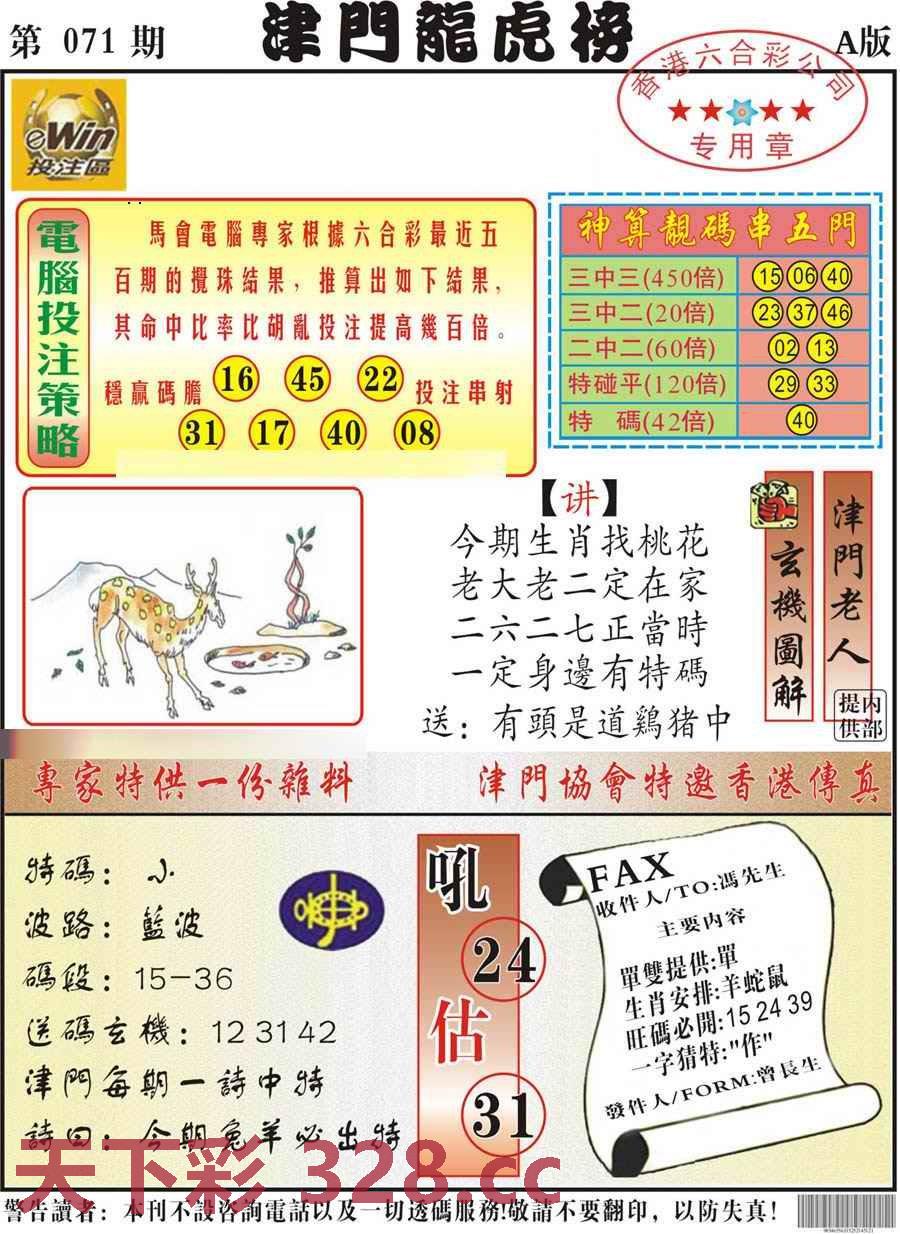 第 071 期
津門龍虎榜
A版
香港六合彩公司
专用章
eWin
投注區
電腦投注策略
馬會電腦專家根據六合彩最近五
百期的攪珠結果，推算出如下結果，
其命中比率比胡亂投注提高幾百倍。
穩贏碼膽 16 45 22 投注串射
31 17 40 08
神算靚碼串五門
三中三(450倍) 15 06 40
三中二(20倍) 23 37 46
二中二(60倍) 02 13
特碰平(120倍) 29 33
特 碼(42倍) 40
【讲】
今期生肖找桃花
老大老二定在家
二六二七正當時
一定身邊有特碼
送：有頭是道鷄猪中
玄機圖解
津門老人
内部提供
專家特供一份雜料
津門協會特邀香港傳真
特碼：小
波路：藍波
碼段：15-36
送碼玄機：12 31 42
津門每期一詩中特
詩曰：今期兔羊必出特
吼
24
估
31
FAX
收件人/TO:馮先生
主要内容
單雙提供:單
生肖安排:羊蛇鼠
旺碼必開:15 24 39
一字猜特:"作"
發件人/FORM:曾長生
天下彩 328.cc
警告讀者：本刊不設咨詢電話以及一切透碼服務!敬請不要翻印，以防失真！